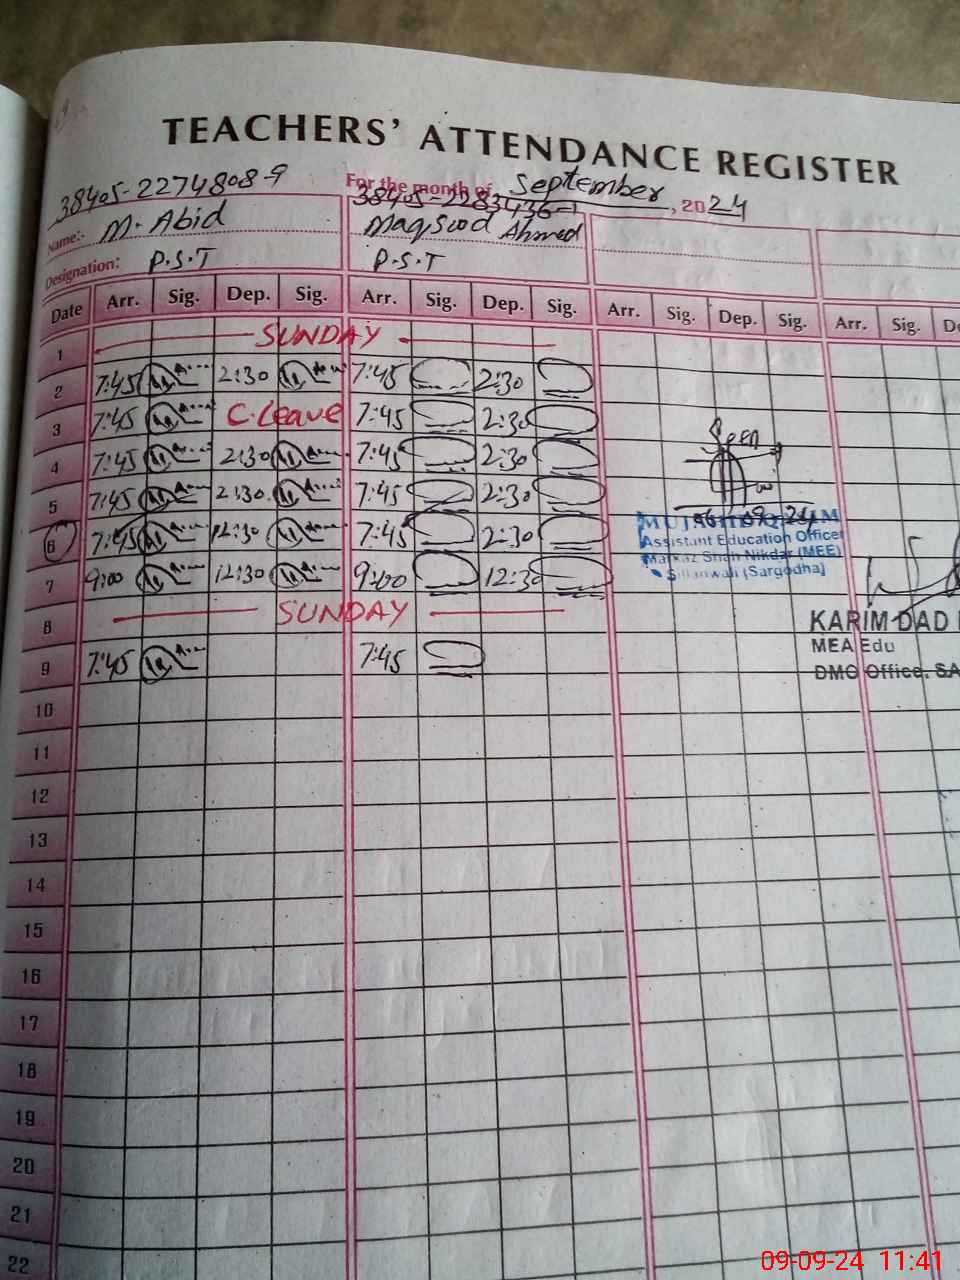 TEACHERS' ATTENDANCE REGISTER
For the month of September, 2024
38405-2274808-9 38405-2283436-1
Name:- M. Abid Maqsood Ahmed
Designation: P.S.T P.S.T
Date Arr. Sig. Dep. Sig. Arr. Sig. Dep. Sig. Arr. Sig. Dep. Sig. Arr. Sig.
1 SUNDAY
2 7:45 2:30 7:45 2:30
3 7:45 C.Leave 7:45 2:30
4 7:45 2:30 7:45 2:30
5 7:45 2:30 7:45 2:30
6 7:45 12:30 7:45 2:30
7 9:00 12:30 9:00 12:30
8 SUNDAY
9 7:45 7:45
10
11
12
13
14
15
16
17
18
19
20
21
22
Seen
06-09-24
Assistant Education Officer
Markaz Shah Nikdar (MEE)
Sillanwali (Sargodha)
KARIM DAD
MEA Edu
DMO Office, SA
09-09-24 11:41